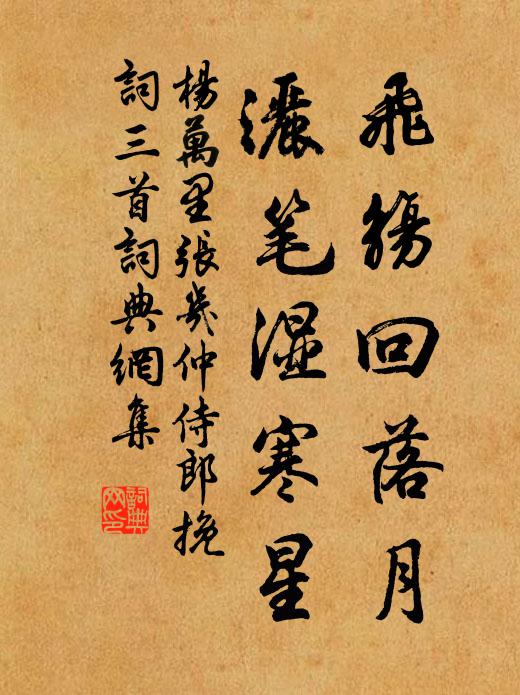 飛觴回落月
灑笔湿寒星
楊萬里張幾仲侍郎挽
詞三首詞典網集
詞典
网印